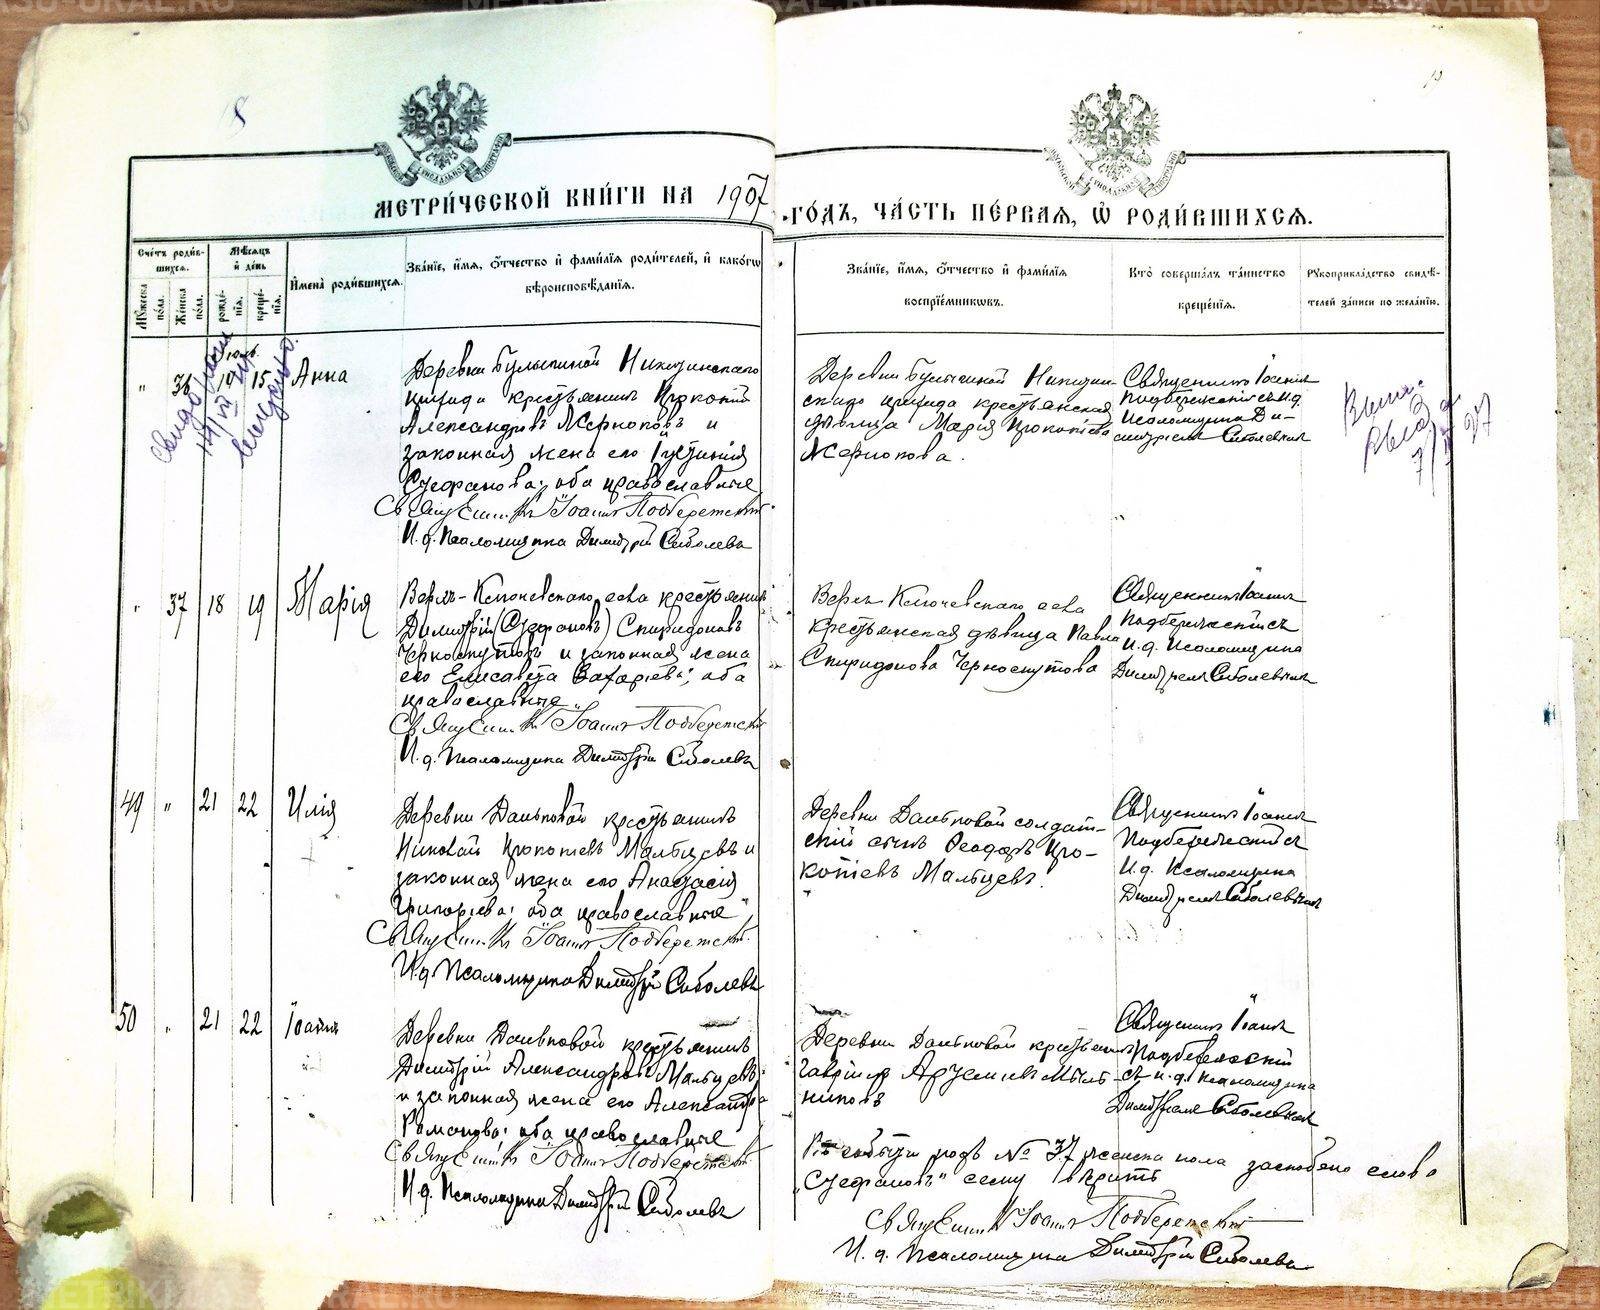 METRIKI.GASO-URAL.RU
8
МЕТРИ́ЧЕСКОЙ КНИ́ГИ НА 1907
ГО́ДЪ, ЧА́СТЬ ПЕ́РВАЯ, Ѡ РОДИ́ВШИХСЯ.
Сче́тъ роди́вшихся.
Мѣ́сяцъ и де́нь
Мꙋ́жеска по́ла.
Же́нска по́ла.
рожде́нїя.
креще́нїя.
Имена̀ роди́вшихся.
Зва́нїе, и́мя, о́тчество и фами́лїя роди́телей, и како́гѡ
вѣроисповѣ́данїя.
Зва́нїе, и́мя, о́тчество и фами́лїя
воспрїе́мниковъ.
Кто̀ соверша́лъ та́инство
креще́нїя.
Рꙋкоприкла́дство свидѣ́-
телей за́писи по жела́нїю.
" 36 15 Анна
Деревни Булыгиной Никитинскаго
прихода крестьянинъ Прокопій
Александровъ Жерноповъ и
законная жена его Іустинія
Стефанова; оба православные
Священникъ Іоаннъ Подберетскій
И. д. Псаломщика Димитрій Соболевъ
Деревни Булыгиной Никитин-
скаго прихода крестьянская
дѣвица Марія Прокопіева
Жернопова.
Священникъ Іоаннъ
И.д.
Псаломщика Ди-
митріемъ Соболевымъ
" 37 18 19 Марія
Верхъ-Ключевскаго села крестьянинъ
Димитрій (Стефановъ) Спиридоновъ
Черноскутовъ и законная жена
его Елисавета Захаріева; оба
православные
Священникъ Іоаннъ Подберетскій
И. д. Псаломщика Димитрій Соболевъ
Верхъ Ключевскаго села
крестьянская дѣвица Павла
Спиридонова Черноскутова
Священникъ Іоаннъ
И. д. Псаломщика
Димитріемъ Соболевымъ
49 " 21 22 Илія
Деревни Даньковой крестьянинъ
Николай Прокопіевъ Мальцевъ и
законная жена его Анастасія
Григоріева; оба православные
Священникъ Іоаннъ Подберетскій
И.д. Псаломщика Димитрій Соболевъ
Деревни Даньковой солдат-
скій сынъ Ѳеодоръ Про-
копіевъ Мальцевъ.
Священникъ Іоаннъ
И. д. Псаломщика
Димитріемъ Соболевымъ
50 " 21 22 Іоаннъ
Деревни Даньковой крестьянинъ
Димитрій Александровъ Мальцевъ
и законная жена его Александра
Романова; оба православные
Священникъ Іоаннъ Подберетскій
И. д. Псаломщика Димитрій Соболевъ
Деревни Даньковой крестьянинъ
Гавріилъ Артемиевъ
Священникъ Іоаннъ
и. д. псаломщика
Димитріемъ Соболевымъ
подъ № 37 женска пола заскоблено слово
„Стефановъ" сему вѣрить
Священникъ Іоаннъ Подберетскій
И. д. Псаломщика Димитрій Соболевъ